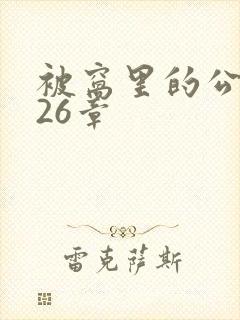 被窝里的公
26章
雷克萨斯